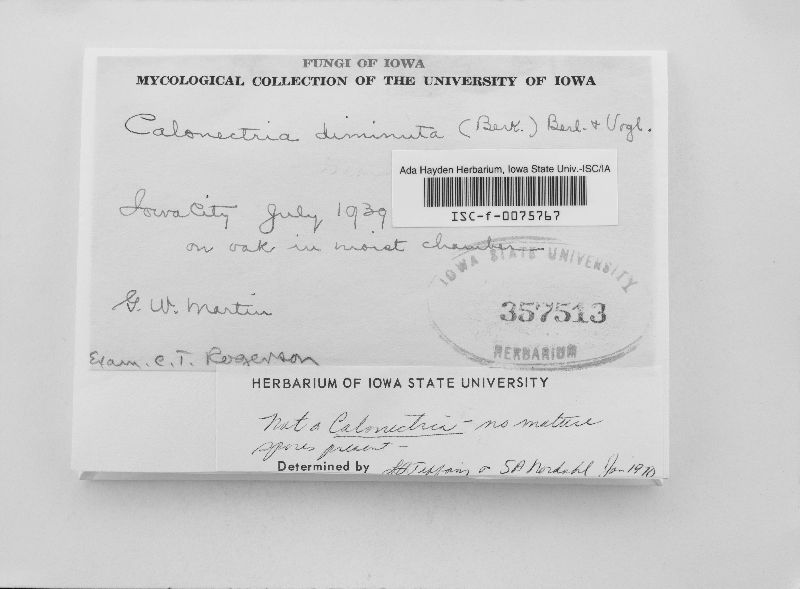 FUNGI OF IOWA
MYCOLOGICAL COLLECTION OF THE UNIVERSITY OF IOWA
Calonectria diminuta (Berk.) Berl. & Vogl.
Ada Hayden Herbarium, Iowa State Univ.-ISC/IA
ISC-f-0075767
Iowa City July 1939
on oak in moist chamber
IOWA STATE UNIVERSITY
357513
HERBARIUM
G. W. Martin
Exam. C. T. Rogerson
HERBARIUM OF IOWA STATE UNIVERSITY
Not a Calonectria - no mature
spores present -
Determined by LH Tiffany & SA Nordahl Jan 1970